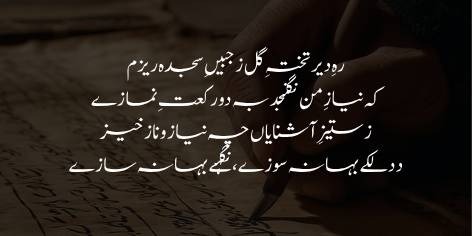 رہِ دیر تختہِ گل ز جبیںِ سجدہ ریزم
کہ نیازِ من نگنجد بہ دو رکعتِ نمازے
ز ستیزِ آشنایاں چہ نیاز و ناز خیزد
دلکے بہانہ سوزے، نگہے بہانہ سازے